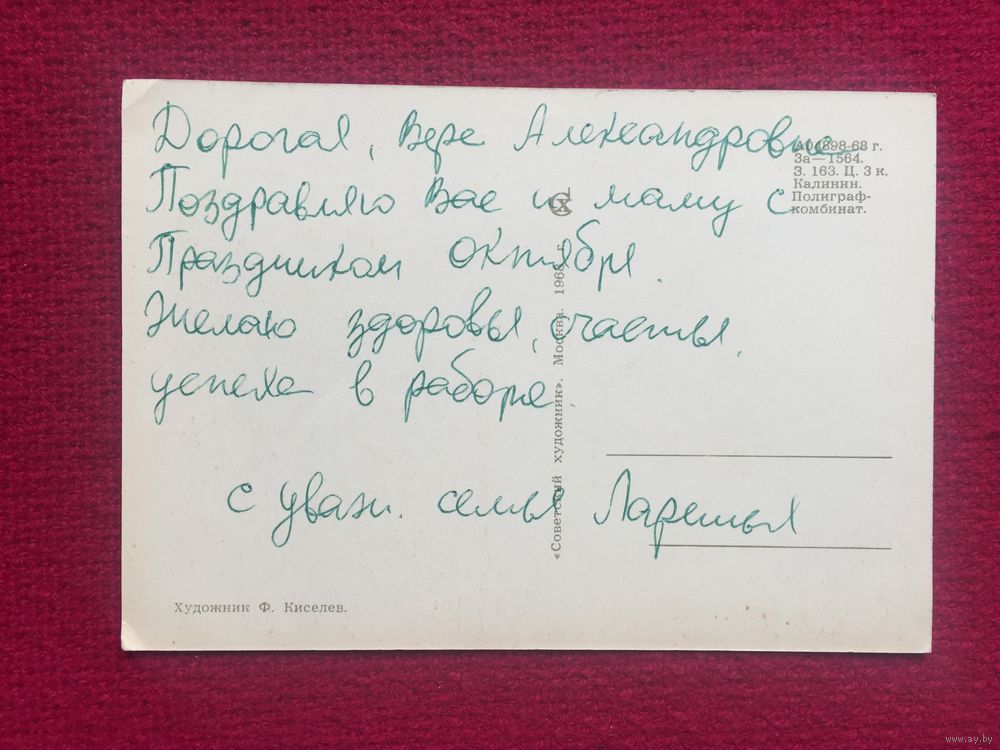 Дорогая, Вера Александровна
Поздравляю Вас и маму с
Праздником Октября.
Желаю здоровья, счастья,
успеха в работе
с уваж. семья
А04898-68 г.
За—1564.
З. 163. Ц. 3 к.
Калинин.
Полиграф-
комбинат.
«Советский художник». Москва. 1968 г.
Художник Ф. Киселев.
www.ay.by